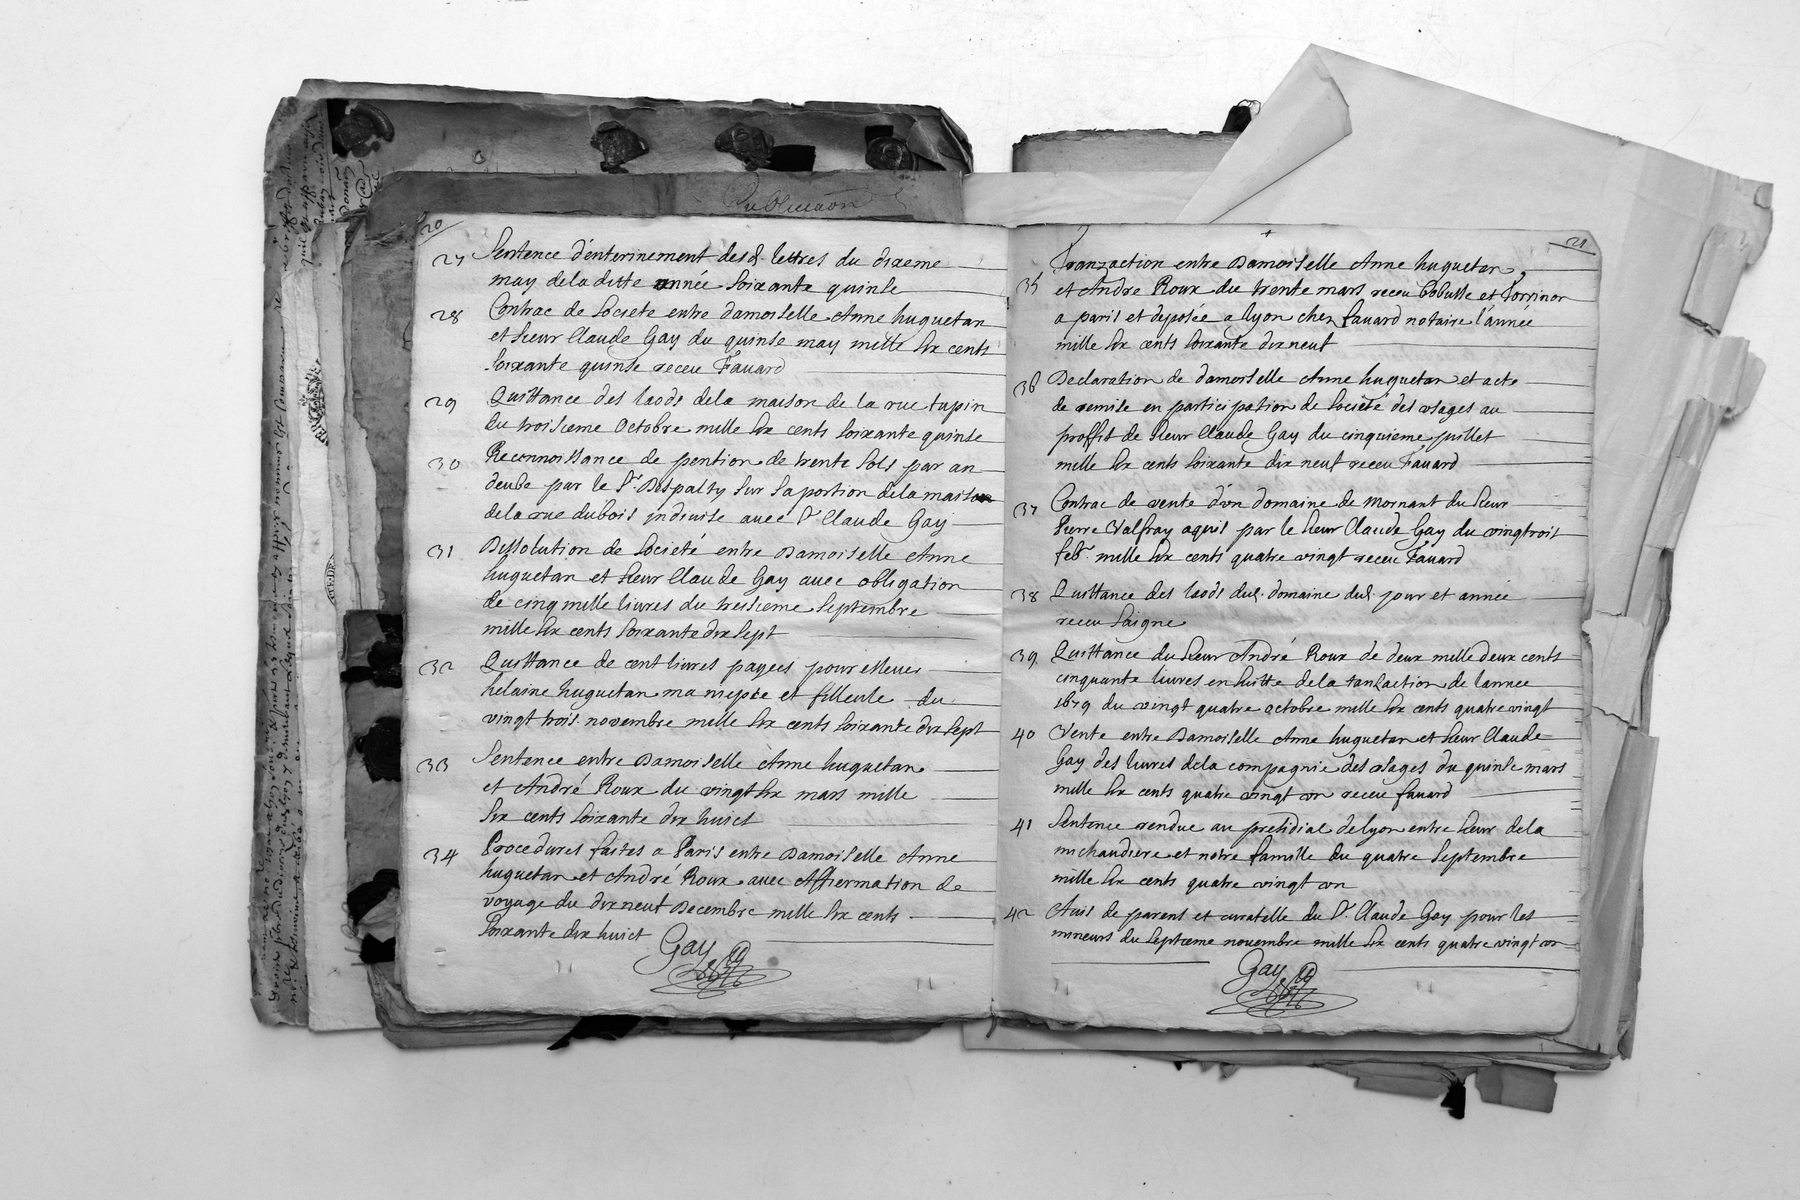 Publication
20
27 Sentence d'enterinement desd. lettres du dixeme
may dela dite année soixante quinse
28 Contrac de Societe entre damoiselle Anne huguetan
et sieur Claude Gay du quinse may mille six cents
soixante quinse receu Favard
29 Quittance des laods dela maison de la rue tupin
du troisieme Octobre mille six cents soixante quinse
30 Reconnoissance de pention de trente sols par an
deube par le Sr. Despalty sur sa portion dela maison
dela rue dubois indivise avec Sr. Claude Gay
31 Dissolution de Societé entre Damoiselle Anne
huguetan et sieur Claude Gay avec obligation
de cinq mille livres du treisieme Septembre
mille six cents soixante dix sept
32 Quittance de cent livres payees pour eslever
helaine huguetan ma niepce et filleule du
vingt trois novembre mille six cents soixante dix sept
33 Sentence entre Damoiselle Anne huguetan
et André Roux du vingt six mars mille
six cents soixante dix huict
34 Procedures faites a Paris entre Damoiselle Anne
huguetan et André Roux avec Affiermation de
voyage du dix neuf Decembre mille six cents
soixante dix huict
Gay
21
Tranzaction entre Damoiselle Anne huguetan
35 et André Roux du trente mars receu et
a paris et deposée a lyon chez favard notaire l'année
mille six cents soixante dix neuf
36 Declaration de damoiselle Anne huguetan et acte
de remise en participation de societé des usages au
proffit de sieur Claude Gay du cinquieme juillet
mille six cents soixante dix neuf receu Favard
37 Contrac de vente d'un domaine de Mornant du sieur
Pierre Valfray aquis par le sieur Claude Gay du vingt trois
febr. mille six cents quatre vingt receu Favard
38 Quittance des laods dud. domaine dud. jour et année
receu Saigne
39 Quittance du sieur André Roux de deux mille deux cents
cinquante livres en suitte dela tanzaction de lannee
1679 du vingt quatre octobre mille six cents quatre vingt
40 Vente entre Damoiselle Anne huguetan et sieur Claude
Gay des livres dela compagnie des usages du quinse mars
mille six cents quatre vingt un receu favard
41 Sentence rendue au presidial de lyon entre sieur dela
michaudiere et notre famille du quatre Septembre
mille six cents quatre vingt un
42 Avis de parens et curatelle du Sr. Claude Gay pour les
mineurs du septieme novembre mille six cents quatre vingt un
Gay